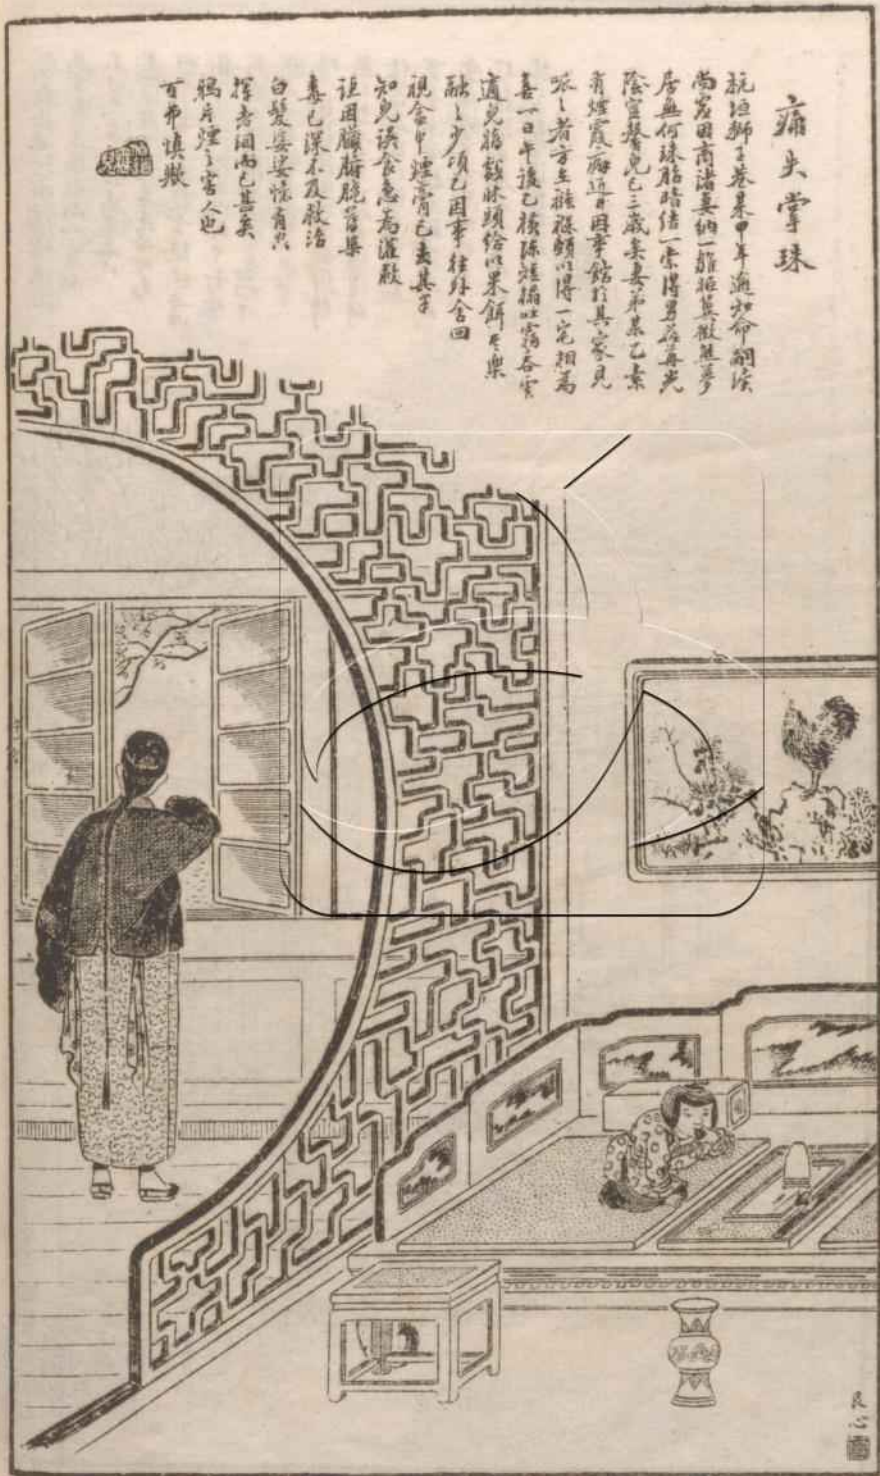 痛失掌珠
杭垣獅子巷某甲年逾知命嗣續
尚虛因商諸妻納一簉姬冀徵熊夢
居無何珠胎暗結一索得男荏苒光
陰室馨兒已三歲矣妻弟某乙素
有煙霞癖近日因事館於其家見
呱呱者方在襁褓頗以得一宅相為
喜一日午後乙橫陳短榻吐霧吞雲
適兒匍匐牀頭給以果餌其樂
融融少頃乙因事往外舍回
視盒中煙膏已去其半
知兒誤食急為灌救
詎因臟腑脆薄集
毒已深不及救治
白髮婆娑惟有共
揮老淚而已甚矣
鴉片煙之害人也
可弗慎歟
良心